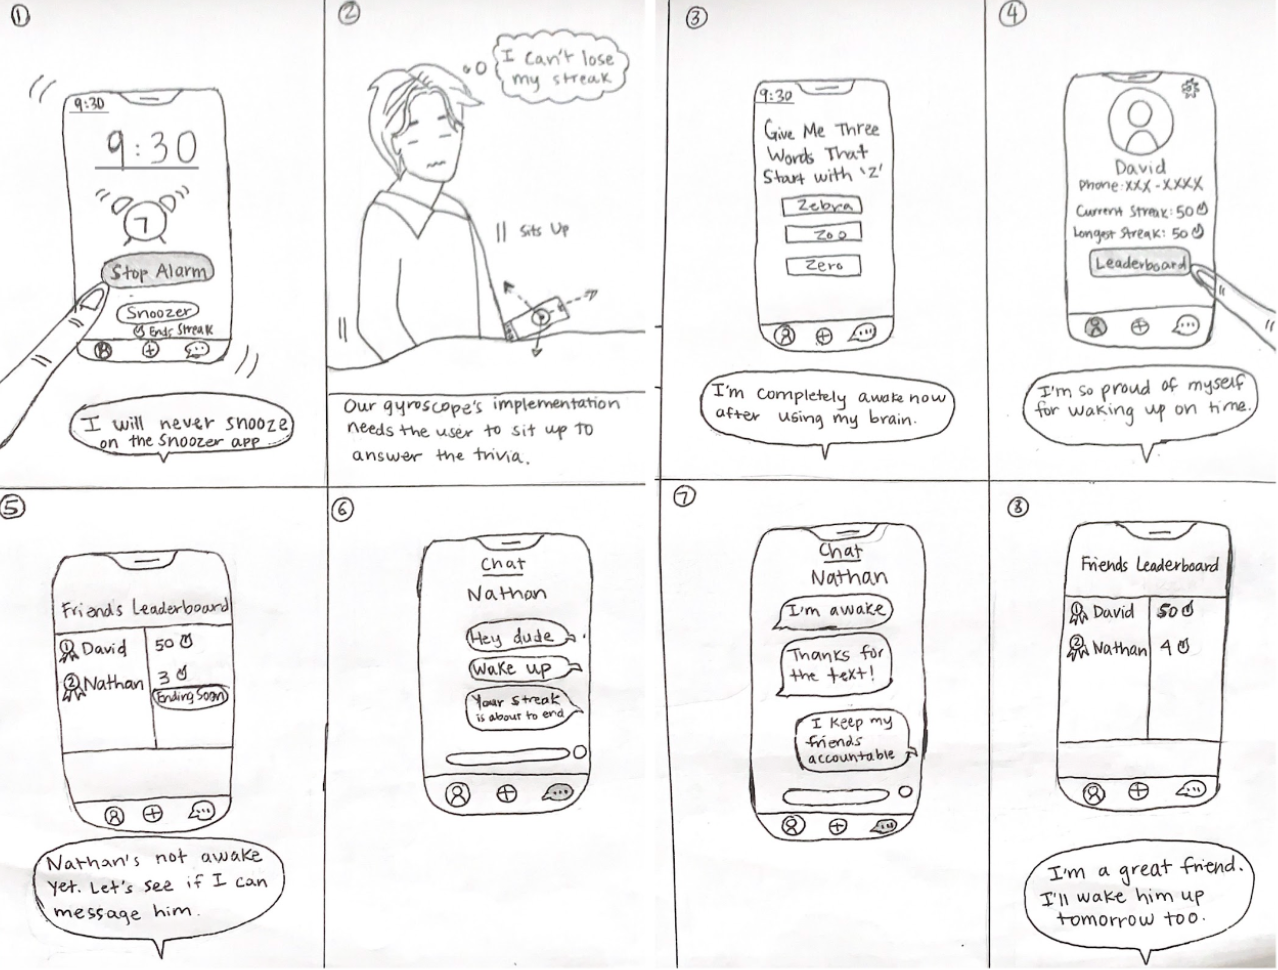 ①
9:30
9:30
7
Stop Alarm
Snoozer
Ends Streak
I will never snooze
on the snoozer app
②
I can't lose
my streak
Sits Up
Our gyroscope's implementation
needs the user to sit up to
answer the trivia.
③
9:30
Give Me Three
Words That
Start with 'Z'
Zebra
Zoo
Zero
I'm completely awake now
after using my brain.
④
David
Phone: XXX-XXXX
Current Streak: 50
Longest Streak: 50
Leaderboard
I'm so proud of myself
for waking up on time.
⑤
Friends Leaderboard
1 David 50
2 Nathan 3
Ending Soon
Nathan's not awake
yet. Let's see if I can
message him.
⑥
Chat
Nathan
Hey dude
Wake up
Your streak
is about to end
⑦
Chat
Nathan
I'm awake
Thanks for
the text!
I keep my
friends
accountable
⑧
Friends Leaderboard
1 David 50
2 Nathan 4
I'm a great friend.
I'll wake him up
tomorrow too.